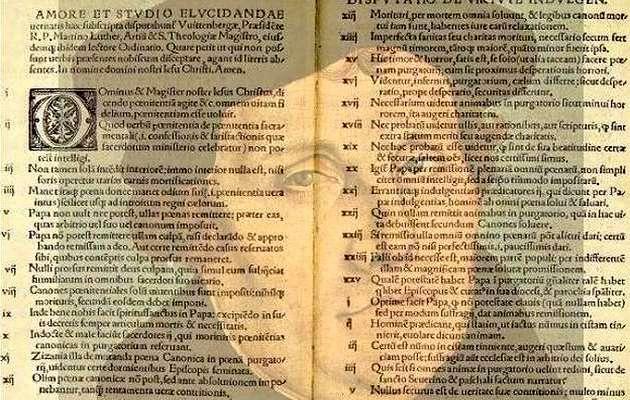 AMORE ET STVDIO ELVCIDANDAE
ueritatis hæc subscripta disputabunť Vuittenbergæ, Præsidēte
R. P. Martino Luther, Artiū & S. Theologiæ Magistro, eius-
dem ibidem lectore Ordinario. Quare petit ut qui non pos-
sunt uerbis præsentes nobiscum disceptare, agant id literis ab-
sentes. In nomine domini nostri Iesu Christi. Amen.
i Ominus & Magister noster Iesus Christus, di-
cendo pœnitentiā agite &c. omnem uitam fi
delium, pœnitentiam esse uoluit.
ij Quod uerbū pœnitentiæ de pœnitentia sacra-
mentali (.i. confessionis & satisfactionis quæ
sacerdotum ministerio celebratur) non po-
test intelligi.
iij Non tamen solā intēdit interiorē: immo interior nulla est, nisi
foris operetur uarias carnis mortificationes.
iiij Manet itaqͥ pœna donec manet odium sui (.i. pœnitentia uera
intus) scilicet usqͥ ad introitum regni cælorum.
v Papa non uult nec potest, ullas pœnas remittere: præter eas,
quas arbitrio uel suo uel canonum imposuit.
vj Papa nō potest remittere ullam culpā, nisi declarādo & appro
bando remissam a deo. Aut certe remittēdo casus reseruatos
sibi, quibus cōtēptis culpa prorsus remaneret.
vij Nulli prorsus remittit deus culpam, quin simul eum subijciat
humiliatum in omnibus sacerdoti suo uicario.
viij Canones pœnitentiales solū uiuentibus sunt impositi: nihilqͥ
morituris, secundū eosdem debet imponi.
ix Inde bene nobis facit spiritussanctus in Papa: excipiēdo in su
is decretis semper articulum mortis & necessitatis.
x Indocte & male faciūt sacerdotes ij, qui morituris pœnitētias
canonicas in purgatorium reseruant.
xi Zizania illa de mutanda pœna Canonica in pœnā purgato-
rij, uidentur certe dormientibus Episcopis seminata.
xij Olim pœnæ canonicæ nō post, sed ante absolutionem im po-
DISPVTATIO DE VIRTVTE INDVLGEN.
xiij Morituri, per mortem omnia soluunt, & legibus canonū mor-
tui iam sunt, habentes iure earū relaxationem.
xiiij Imperfecta sanitas seu charitas morituri, necessario secum fert
magnū timorem, tātoqͥ maiorē, quāto minor fuerit ipsa.
xv Hic timor & horror, satis est, se solo (ut alia taceam) facere pœ-
nam purgatorij, cum sit proximus desperationis horrori.
xvj Videntur, infernus, purgatorium, cælum differre: sicut despe-
ratio, prope desperatio, securitas differunt.
xvij Necessarium uidetur animabus in purgatorio sicut minui hor-
rorem, ita augeri charitatem.
xviij Nec probatū uidetur ullis, aut rationibus, aut scripturis, qͥ sint
extra statum meriti seu augendæ charitatis.
xix Nec hoc probatū esse uidetur, qͥ sint de sua beatitudine certæ
& securæ, saltem oēs, licet nos certissimi simus.
xx Igiť Papa per remissionē plenariā omniū pœnarū, non simpli
citer omniū intelligit, sed a seipso tātūmodo impositarū.
xxj Errant itaqͥ indulgentiarū prædicatores ij, qui dicunt per Pa-
pæ indulgentias, hominē ab omni pœna solui & saluari.
xxij Quin nullam remittit animabus in purgatorio, quā in hac ui-
ta debuissent secundum Canones soluere.
xxiij Si remissio ulla omniū omnino pœnarū pōt alicui dari: certū
est eam nō nisi perfectissimis, .i. paucissimis dari.
xxiiij Falli ob id necesse est, maiorem partē populi: per indifferentē
illam & magnificam pœnæ solutæ promissionem.
xxv Qualē potestatē habet Papa ī purgatoriū gñaliter talē habet
quilibet Episcopus & curatus in sua diœcesi, & parochia spāliter.
i Optime facit Papa, qͥ nō potestate clauis (quā nullam habet)
sed per modum suffragij, dat animabus remissionem.
ij Hominē prædicant, qui statim, ut iactus nūmus in cistam tin-
nierit, euolare dicunt animam.
iij Certū est nūmo in cistam tinniente, augeri quæstum & auari-
ciam posse: suffragiū aūt ecclesiæ est in arbitrio dei solius.
iiij Quis scit si omnes animæ in purgatorio uelint redimi, sicut de
sancto Seuerino & paschali factum narratur.
v Nullus securus est de ueritate suæ contritionis, multo minus